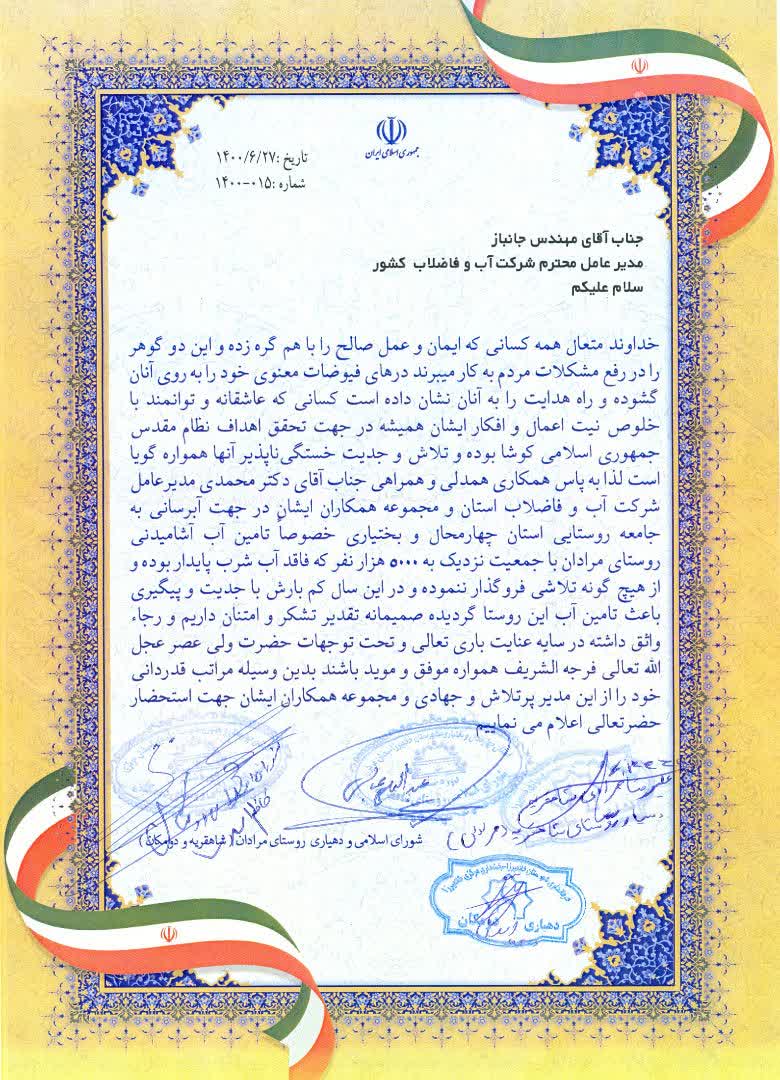 جمهوری اسلامی ایران
تاریخ :۱۴۰۰/۶/۲۷
شماره :۰۱۵-۱۴۰۰
جناب آقای مهندس جانباز
مدیر عامل محترم شرکت آب و فاضلاب کشور
سلام علیکم
خداوند متعال همه کسانی که ایمان و عمل صالح را با هم گره زده و این دو گوهر
را در رفع مشکلات مردم به کار میبرند درهای فیوضات معنوی خود را به روی آنان
گشوده و راه هدایت را به آنان نشان داده است کسانی که عاشقانه و توانمند با
خلوص نیت اعمال و افکار ایشان همیشه در جهت تحقق اهداف نظام مقدس
جمهوری اسلامی کوشا بوده و تلاش و جدیت خستگی‌ناپذیر آنها همواره گویا
است لذا به پاس همکاری همدلی و همراهی جناب آقای دکتر محمدی مدیرعامل
شرکت آب و فاضلاب استان و مجموعه همکاران ایشان در جهت آبرسانی به
جامعه روستایی استان چهارمحال و بختیاری خصوصاً تامین آب آشامیدنی
روستای مرادان با جمعیت نزدیک به ۵۰۰۰ هزار نفر که فاقد آب شرب پایدار بوده و
از هیچ گونه تلاشی فروگذار ننموده و در این سال کم بارش با جدیت و پیگیری
باعث تامین آب این روستا گردیده صمیمانه تقدیر تشکر و امتنان داریم و رجاء
واثق داشته در سایه عنایت باری تعالی و تحت توجهات حضرت ولی عصر عجل
الله تعالی فرجه الشریف همواره موفق و موید باشند بدین وسیله مراتب قدردانی
خود را از این مدیر پرتلاش و جهادی و مجموعه همکاران ایشان جهت استحضار
حضرتعالی اعلام می نماییم
شورای اسلامی و دهیاری روستای مرادان( شاهقریه و دومکان )
دهیاری